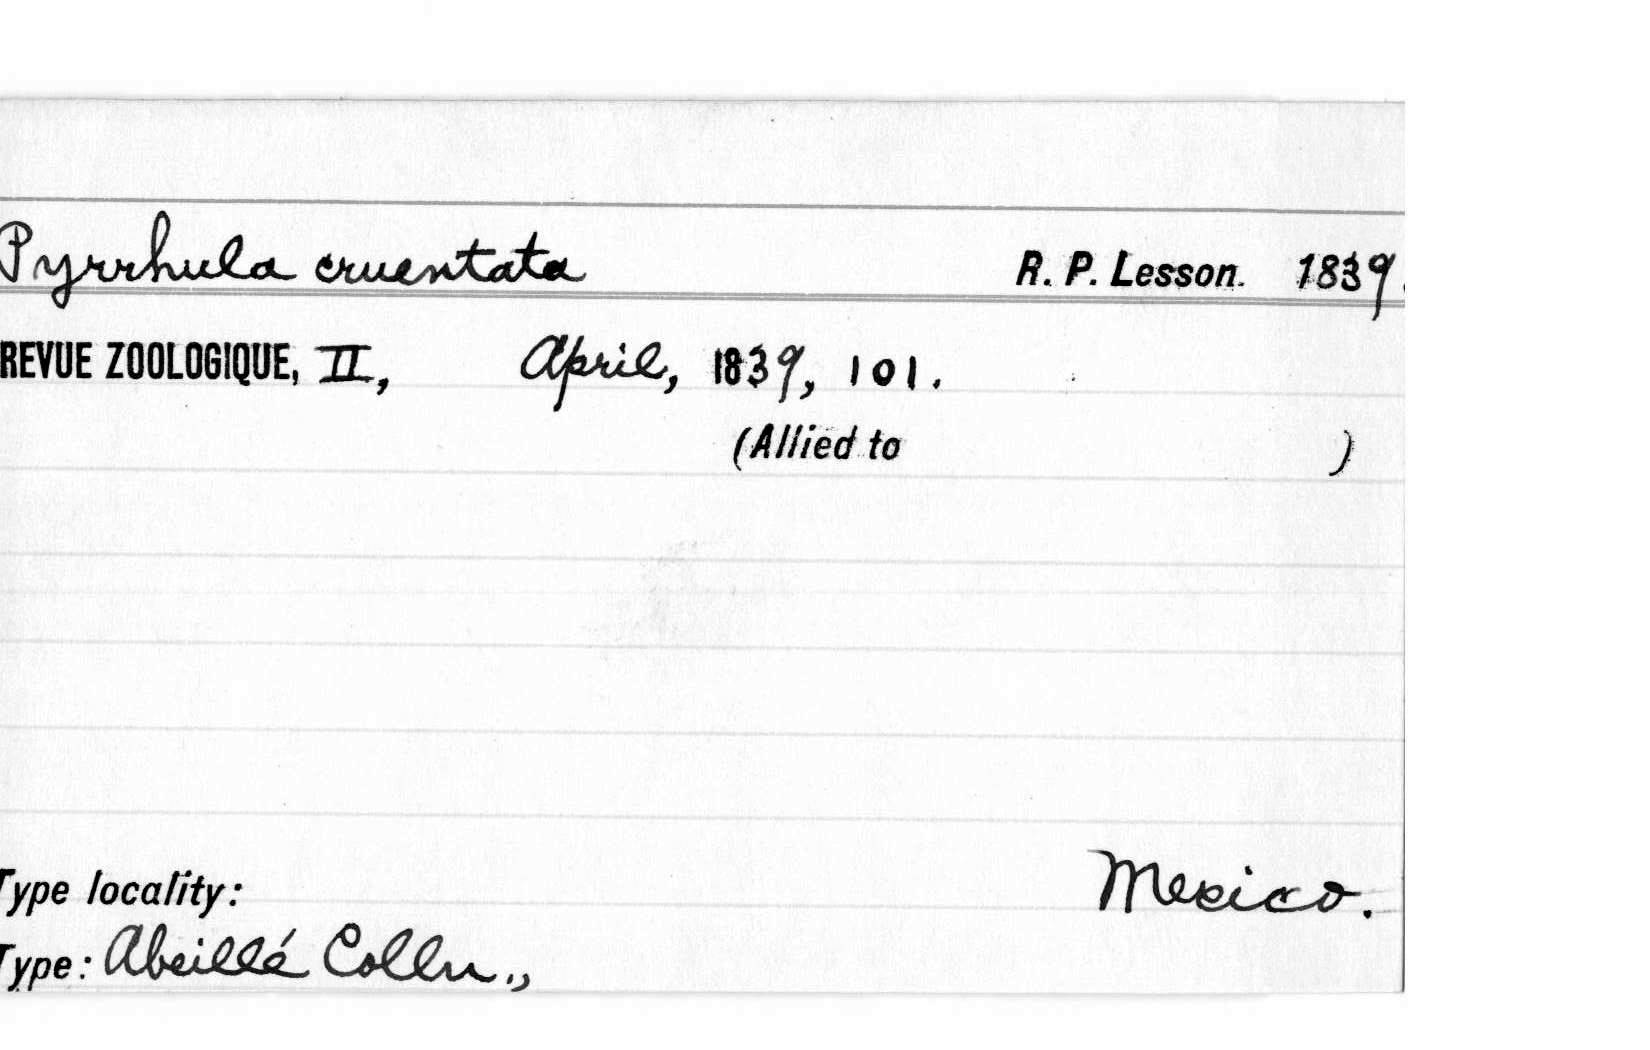 Pyrrhula cruentata R. P. Lesson. 1839.
REVUE ZOOLOGIQUE, II, April, 1839, 101.
(Allied to )
Type locality: Mexico.
Type: Abeillé Colln.,